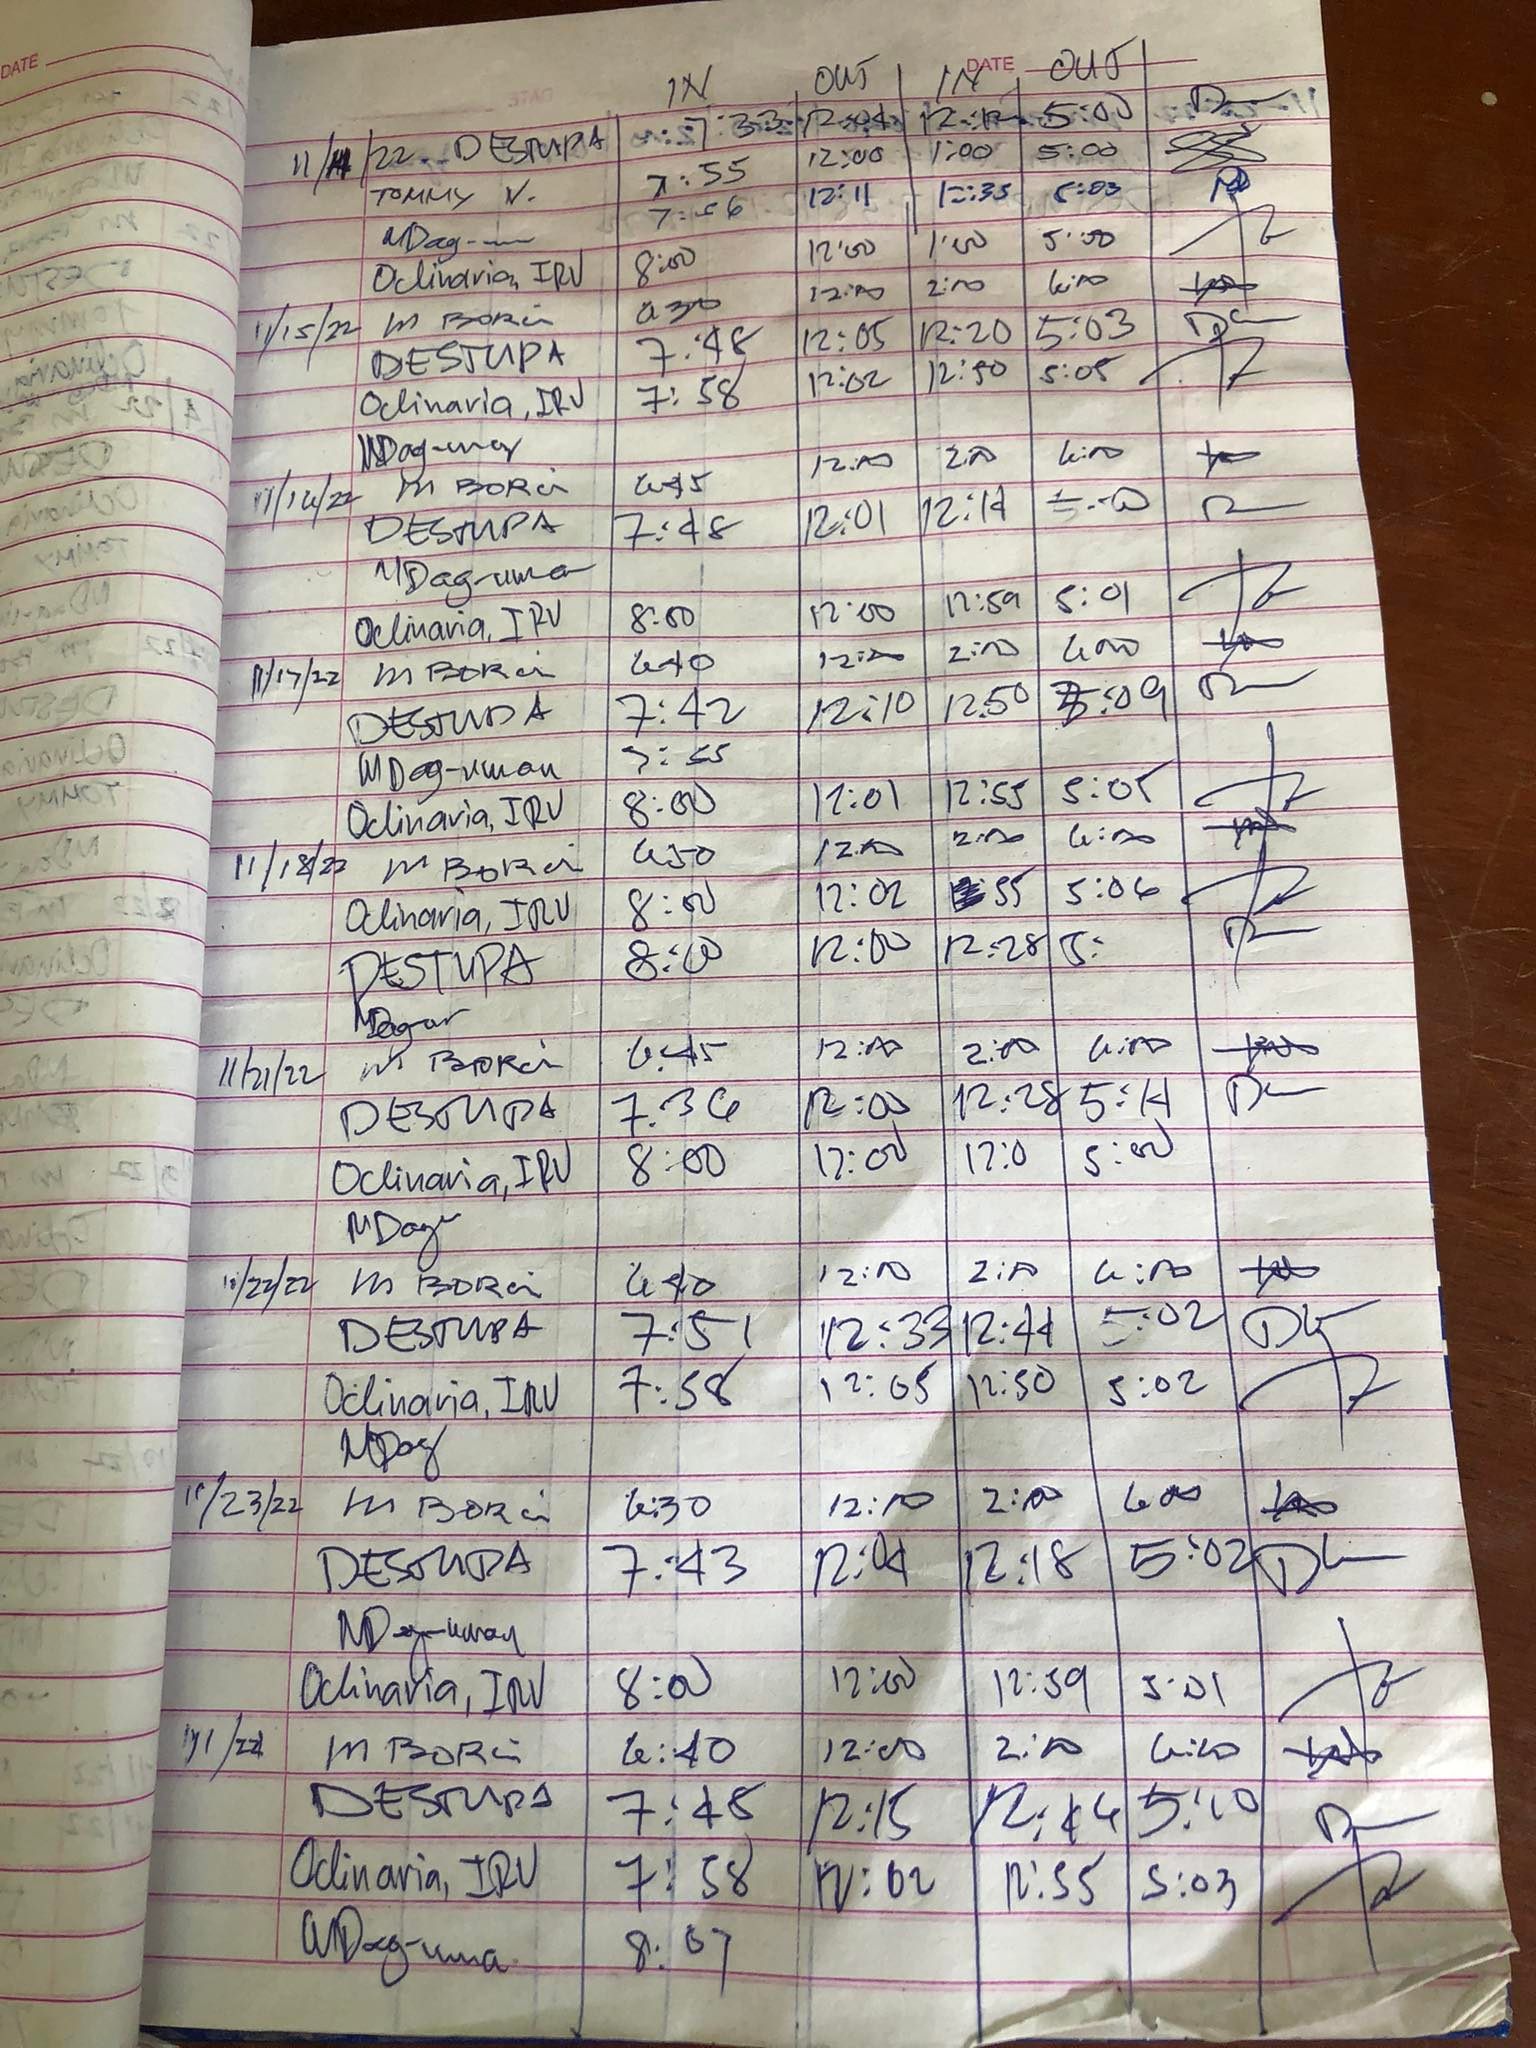 DATE
DATE
IN OUT IN OUT
11/14/22 DESTUPA 7:33 12:04 12:12 5:00
TOMMY N. 7:55 12:00 1:00 5:00
7:56 12:11 12:35 5:03
Oclinaria, IRV 8:00 12:00 1:00 5:00
11/15/22 M BORCI 630 12:00 2:00 6:00
DESTUPA 7:48 12:05 12:20 5:03
Oclinaria, IRV 7:58 12:02 12:50 5:05
NDag-uman
11/16/22 M BORCI 6:45 12:00 2:00 6:00
DESTUPA 7:48 12:01 12:14 5:00
NDag-uman
Oclinaria, IRV 8:00 12:00 12:59 5:01
11/17/22 M BORCI 6:40 12:00 2:00 6:00
DESTUPA 7:42 12:10 12:50 5:09
NDag-uman 7:55
Oclinaria, IRV 8:00 12:01 12:55 5:05
11/18/22 M BORCI 6:50 12:00 2:00 6:00
Oclinaria, IRV 8:00 12:02 :55 5:06
DESTUPA 8:00 12:00 12:28 5:
11/21/22 M BORCI 6:45 12:00 2:00 6:00
DESTUPA 7:36 12:00 12:28 5:14
Oclinaria, IRV 8:00 12:00 12:0 5:00
NDag
11/22/22 M BORCI 6:40 12:00 2:00 6:00
DESTUPA 7:51 12:33 12:44 5:02
Oclinaria, IRV 7:58 12:05 12:50 5:02
NDag
11/23/22 M BORCI 6:30 12:00 2:00 6:00
DESTUPA 7:43 12:04 12:18 5:02
NDag-uman
Oclinaria, IRV 8:00 12:00 12:59 5:01
M BORCI 6:40 12:00 2:00 6:00
DESTUPA 7:48 12:15 12:46 5:10
Oclinaria, IRV 7:58 12:02 12:55 5:03
NDag-uma 8:07